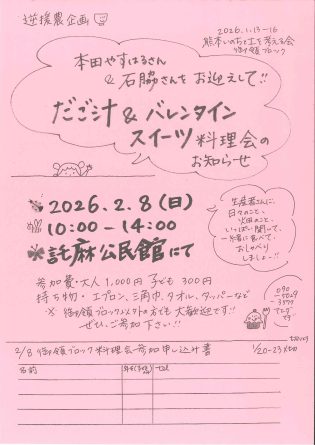 逆援農企画
2026.1.13-16
熊本いのちと土を考える会
御領ブロック
本田やすはるさん
& 石脇さんをお迎えして!!
だご汁 & バレンタイン
スイーツ料理会の
お知らせ
2026.2.8(日)
10:00-14:00
託麻公民館にて
生産者さんに、
日々のこと、
畑のこと、
いっぱい聞いて、
一緒に食べて、
おしゃべり
しましょ〜!!
参加費・大人 1,000円 子ども 300円
持ち物・エプロン、三角巾、タオル、タッパーなど
※ 御領ブロック以外の方も大歓迎です!!
ぜひ、ご参加下さい!!
090
-5029
-3379
キリトリ
2/8 御領ブロック料理会参加申し込み書
1/20-23〆切
名前
tel